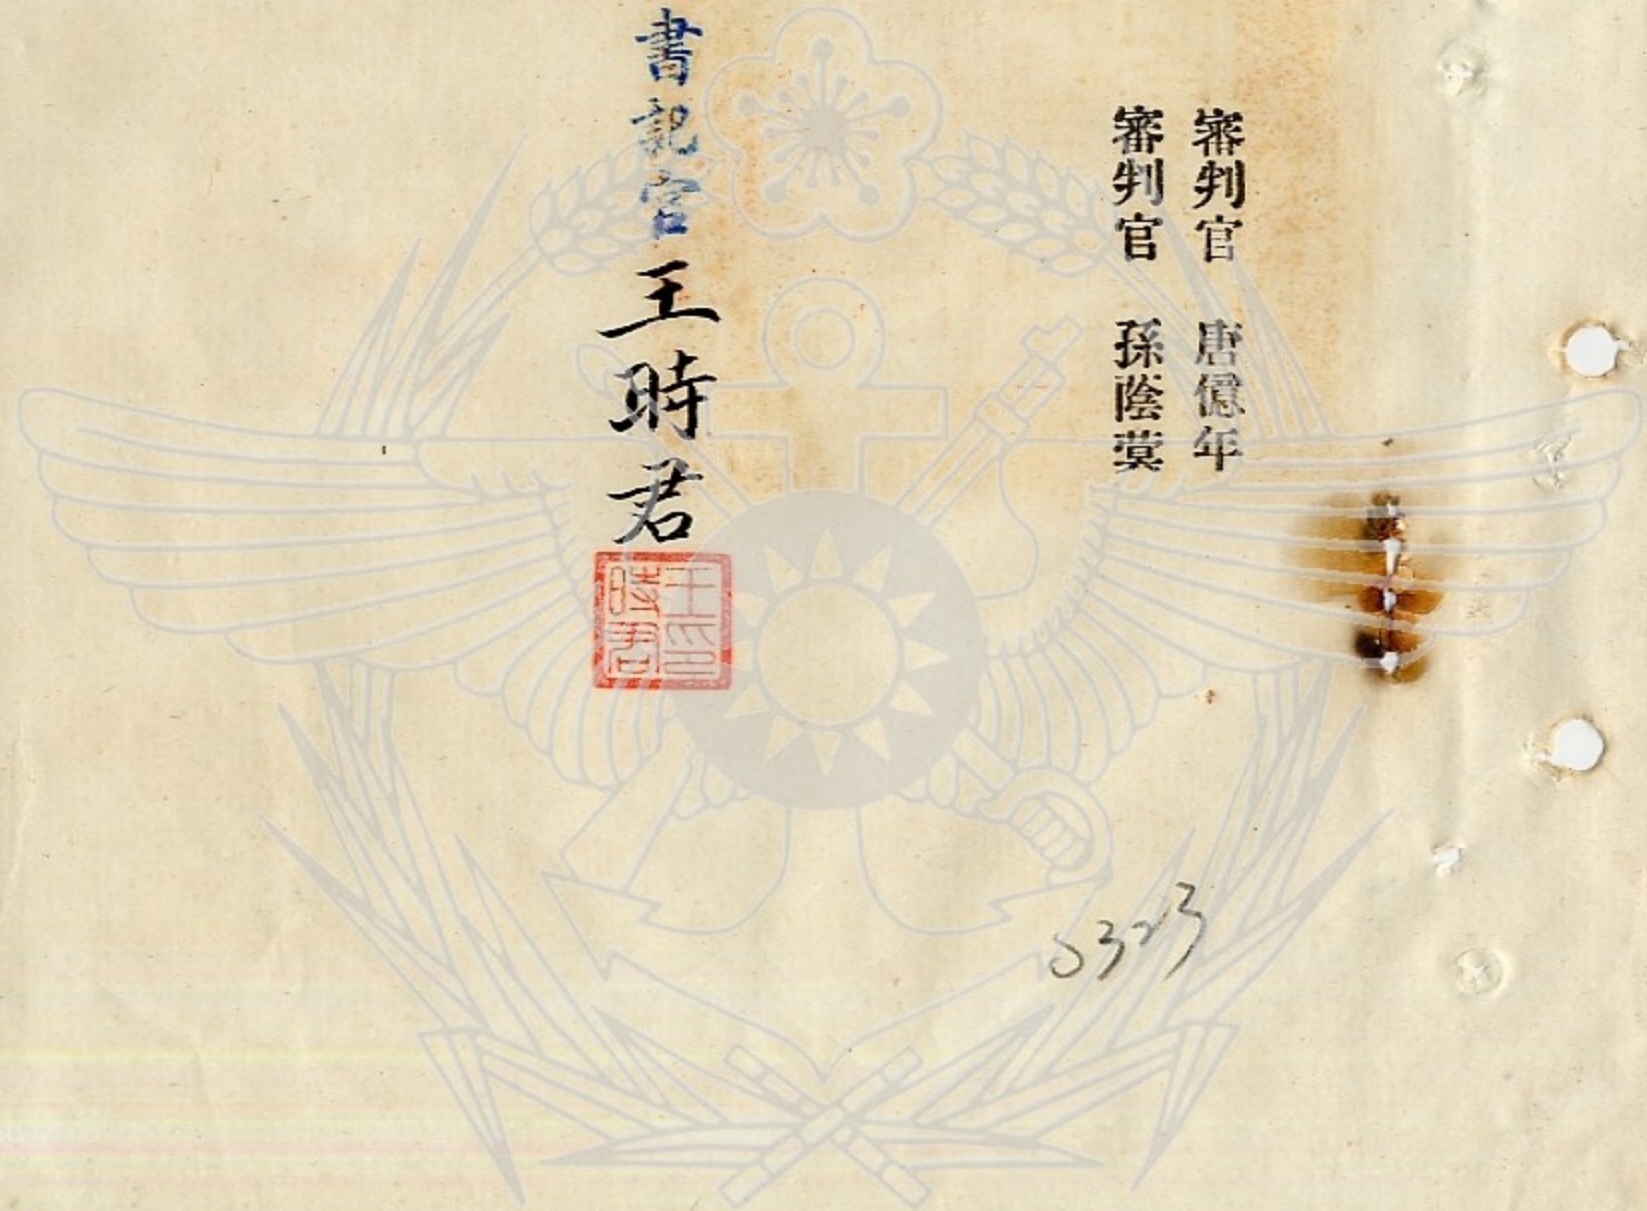 審判官 唐億年
審判官 孫蔭蓂
書記官王時君
王印時君
0323